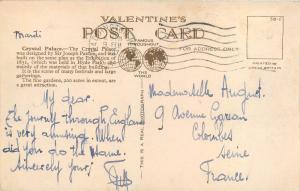 VALENTINE'S
POST CARD
Mardi
FAMOUS
THROUGHOUT
THE
WORLD
FOR ADDRESS ONLY
Crystal Palace.—The Crystal Palace
was designed by Sir Joseph Paxton, and was
built on the same plan as the Exhibition of
1851, (which was held in Hyde Park)
mainly of the materials of that building. It
is the scene of many festivals and large
gatherings.
The fine gardens, 200 acres in extent, are
a great attraction.
THIS IS A REAL PHOTOGRAPH
My dear.
The journey through England
is very amusing. When
did you do the same.
Sincerely yours,
Mademoiselle
9 Avenue
Colombes
Seine
France.